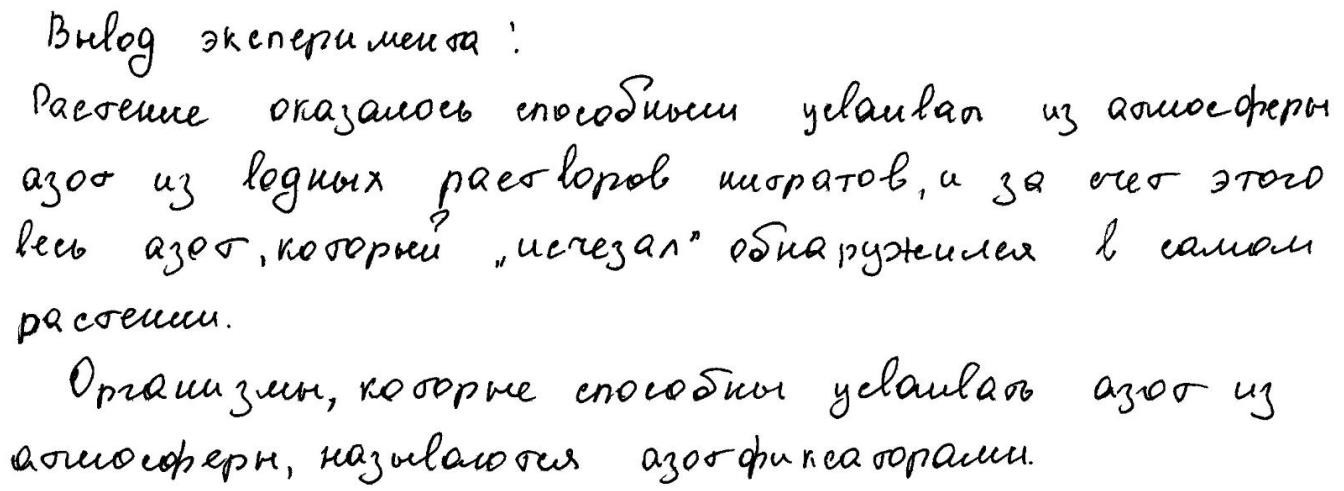 Вывод эксперимента:
Растение оказалось способным усваивать из атмосферы
азот из водных растворов нитратов, и за счет этого
весь азот, который "исчезал" обнаружился в самом
растении.
Организмы, которые способны усваивать азот из
атмосферы, называются азотфиксаторами.